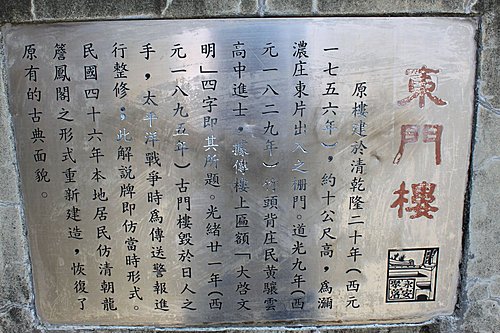 東門樓
原樓建於清乾隆二十年（西元
一七五六年），約十公尺高，為瀰
濃庄東片出入之柵門。道光九年（西
元一八二九年）竹頭背庄民黃驤雲
高中進士，據傳樓上區額「大啓文
明」四字即其所題。光緒廿一年（西
元一八九五年）古門樓毀於日人之
手，太平洋戰爭時為傳送警報進
行整修；此解說牌即仿當時形式。
民國四十六年本地居民仿清朝龍
簷鳳閣之形式重新建造，恢復了
原有的古典面貌。